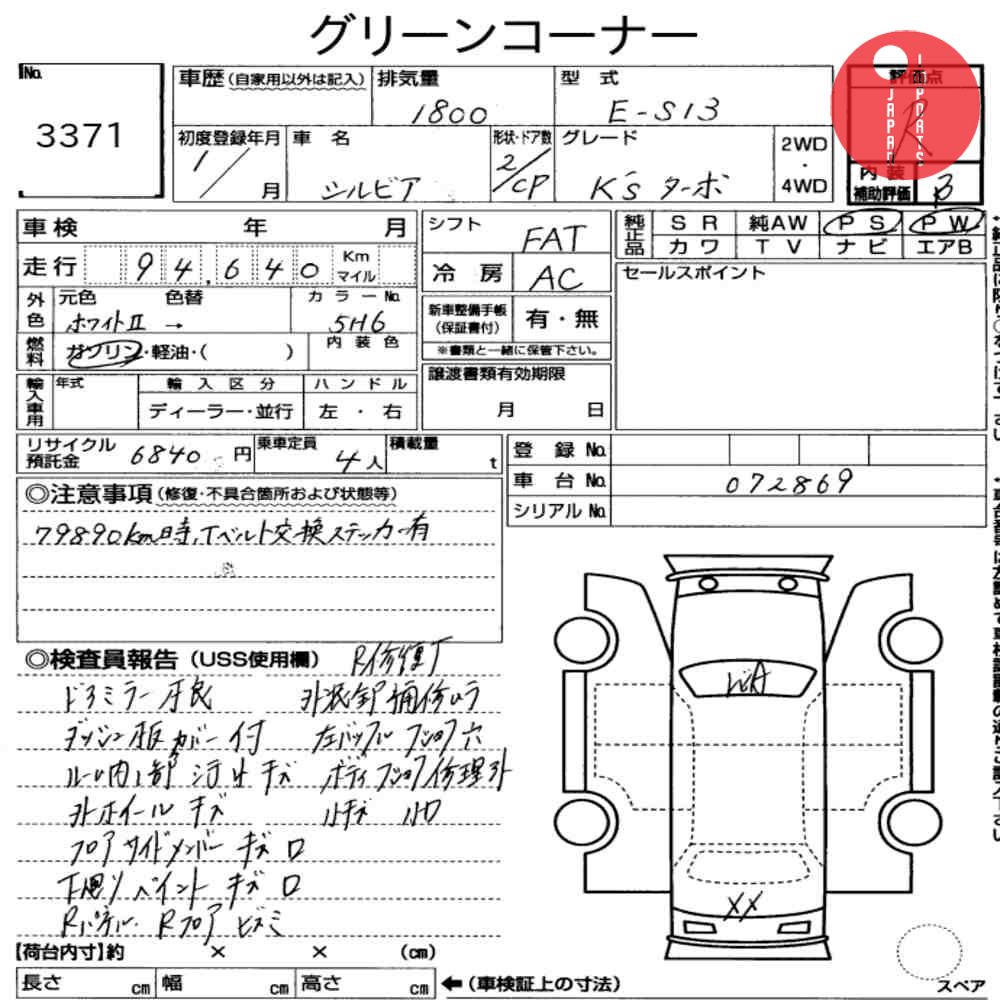 グリーンコーナー
No.
3371
車歴(自家用以外は記入)
排気量
1800
型 式
E-S13
評価点
R
JAPAN
IMPORTS
初度登録年月
1/ 月
車 名
シルビア
形状・ドア数
2/CP
グレード
K's ターボ
2WD
・
4WD
内 装
補助評価
B
車検 年 月
シフト
FAT
純正品
SR 純AW PS PW
カワ TV ナビ エアB
走行 94,640 Km マイル
冷 房
AC
セールスポイント
外色
元色 色替
ホワイトII →
カラーNo.
5H6
新車整備手帳
(保証書付)
有・無
※書類と一緒に保管下さい。
燃料
ガソリン・軽油・( )
内 装 色
輸入車用
年式
輸 入 区 分
ディーラー・並行
ハ ン ド ル
左 ・ 右
譲渡書類有効期限
月 日
リサイクル
預託金
6840 円
乗車定員
4人
積載量
t
登 録 No.
車 台 No.
072869
シリアル No.
◎注意事項(修復・不具合箇所および状態等)
79890km時、Tベルト交換ステッカー有
◎検査員報告(USS使用欄) R修復了
ドアミラー不良 外装部補修ムラ
ダッシュ板カバー付
キズ
外ホイール キズ 小キズ 小凹
フロアサイドメンバー キズ 凹
下廻りペイント キズ 凹
Rパネル・Rフロア
ビA
XX
【荷台内寸】約 × × (cm)
長さ cm 幅 cm 高さ cm ←(車検証上の寸法)
スペア